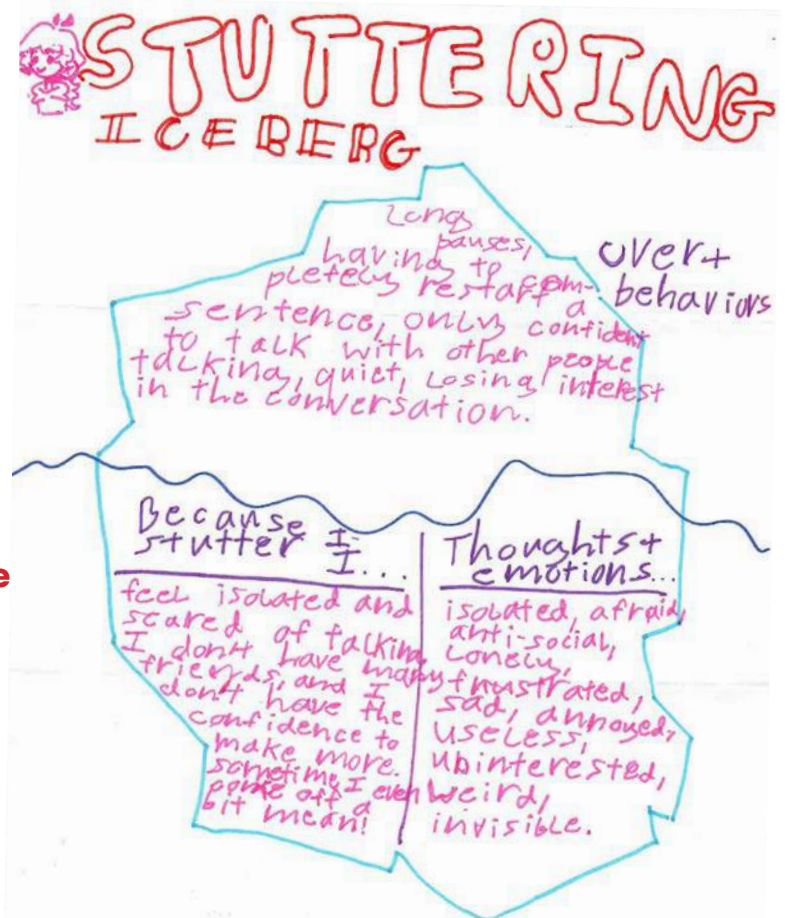 STUTTERING
ICEBERG
Long
pauses,
having to com-
pletely restart a
sentence, only confident
to talk with other people
talking, quiet, Losing interest
in the conversation.
overt
behaviors
Because
stutter I-
I...
feel isolated and
scared of talking
I don't have many
friends, and I
don't have the
confidence to
make more.
sometimes I even
come off a
bit mean!
Thoughts+
emotions...
isolated, afraid,
anti-social,
Lonely,
frustrated,
sad, annoyed,
useless,
ubinterested,
weird,
invisible.
e